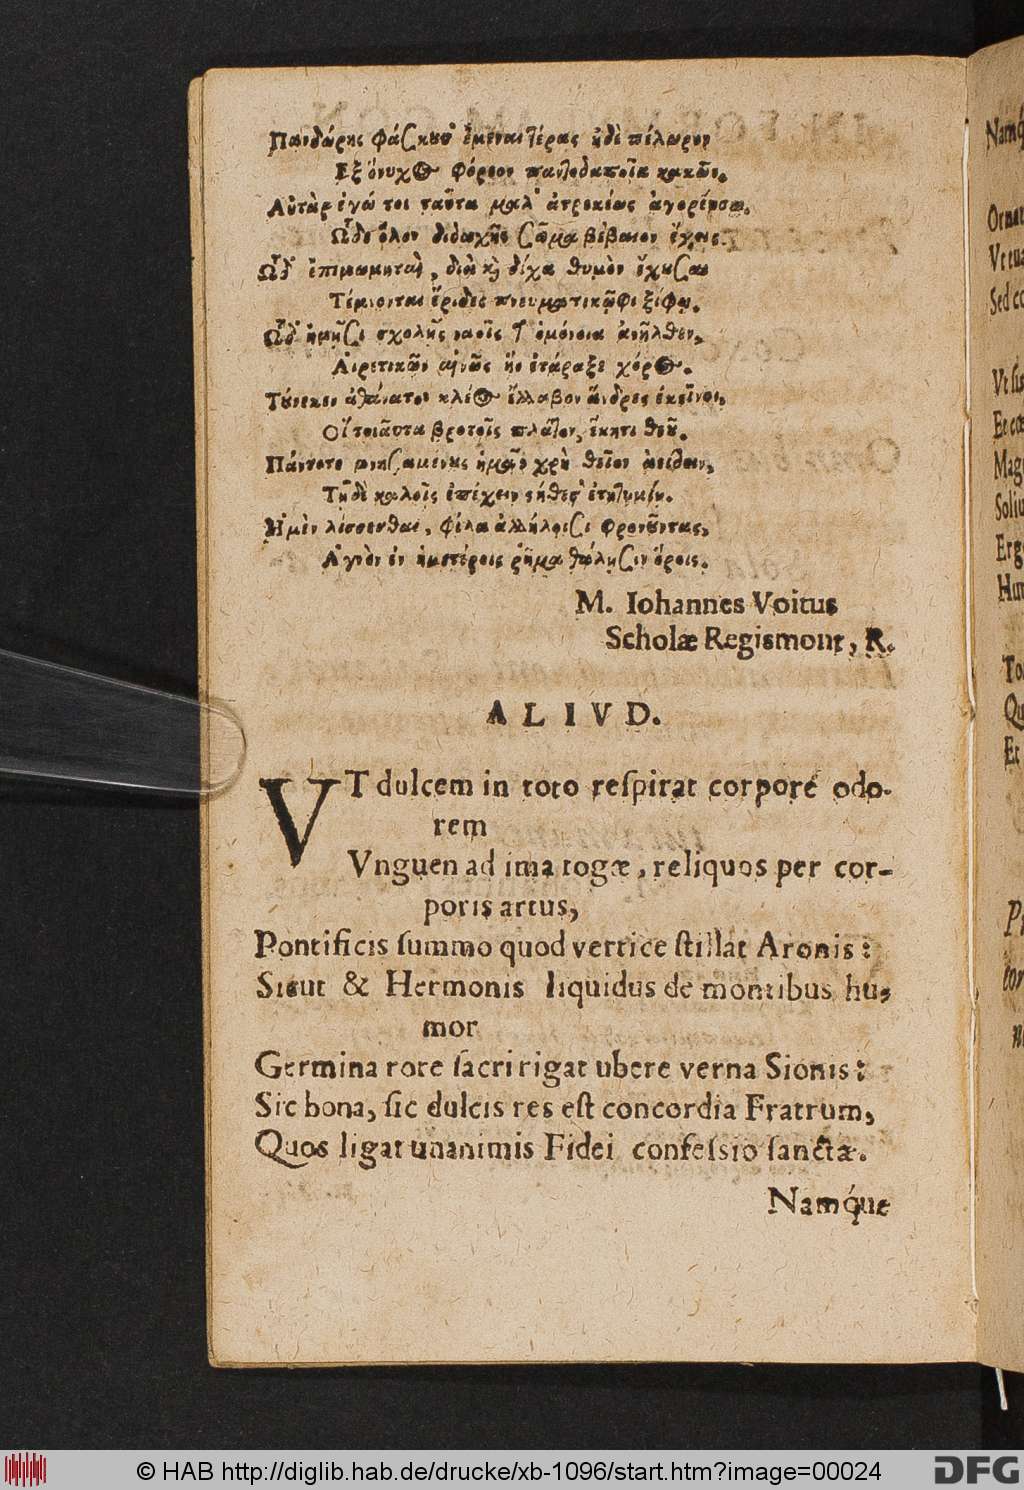 Πανδώρης φάσκουσ' ἔμεναι τέρας ἠδὲ πέλωρον
Ἐξ ὄνυχος φόρεον παντοδαποῖα κακῶν.
Αὐτὰρ ἐγώ τοι ταῦτα μαλ' ἀτρεκέως ἀγορεύσω.
Ὧδε ὅλον διδαχῆς σῶμα βέβαιον ἔχεις.
Ὧδ' δίχα θυμὸν
Τέμνονται ἔριδες πνευματικῶφι ξίφω.
Ὧδ' σχολῆς ὁμόνοια ἀνῆλθεν,
Αἱρετικῶν αἰνῶς ἣν ἐτάραξε χόρος.
Τούνεκεν ἀθάνατον κλέος ἔλλαβον ἄνδρες ἐκεῖνοι,
Οἳ τοιαῦτα βροτοῖς ἕκητι θεοῦ.
Πάντοτε χρὴ θεῖον ἀείδειν,
Τῇδὲ καλοῖς ἐπέχειν
Ἠμὲν λίσσεσθαι, φίλα ἀλλήλοισι φρονοῦντας,
Ἁγνὸν ἐν ἡμετέροις ῥῆμα θάλησιν ὅροις.
M. Iohannes Voitus
Scholæ Regismont, R.
ALIVD.
VT dulcem in toto reſpirat corpore odo-
rem
Vnguen ad ima togæ, reliquos per cor-
poris artus,
Pontificis ſummo quod vertice ſtillat Aronis:
Sicut & Hermonis liquidus de montibus hu-
mor
Germina rore ſacri rigat ubere verna Sionis:
Sic bona, ſic dulcis res eſt concordia Fratrum,
Quos ligat unanimis Fidei confeſsio ſanctæ.
Namq́ue
Namq́
Ornar
Vt tua
Sed co
Vt ſis
Et
Magn
Soliu
Erg
Hun
To
Qu
Et
© HAB http://diglib.hab.de/drucke/xb-1096/start.htm?image=00024
DFG